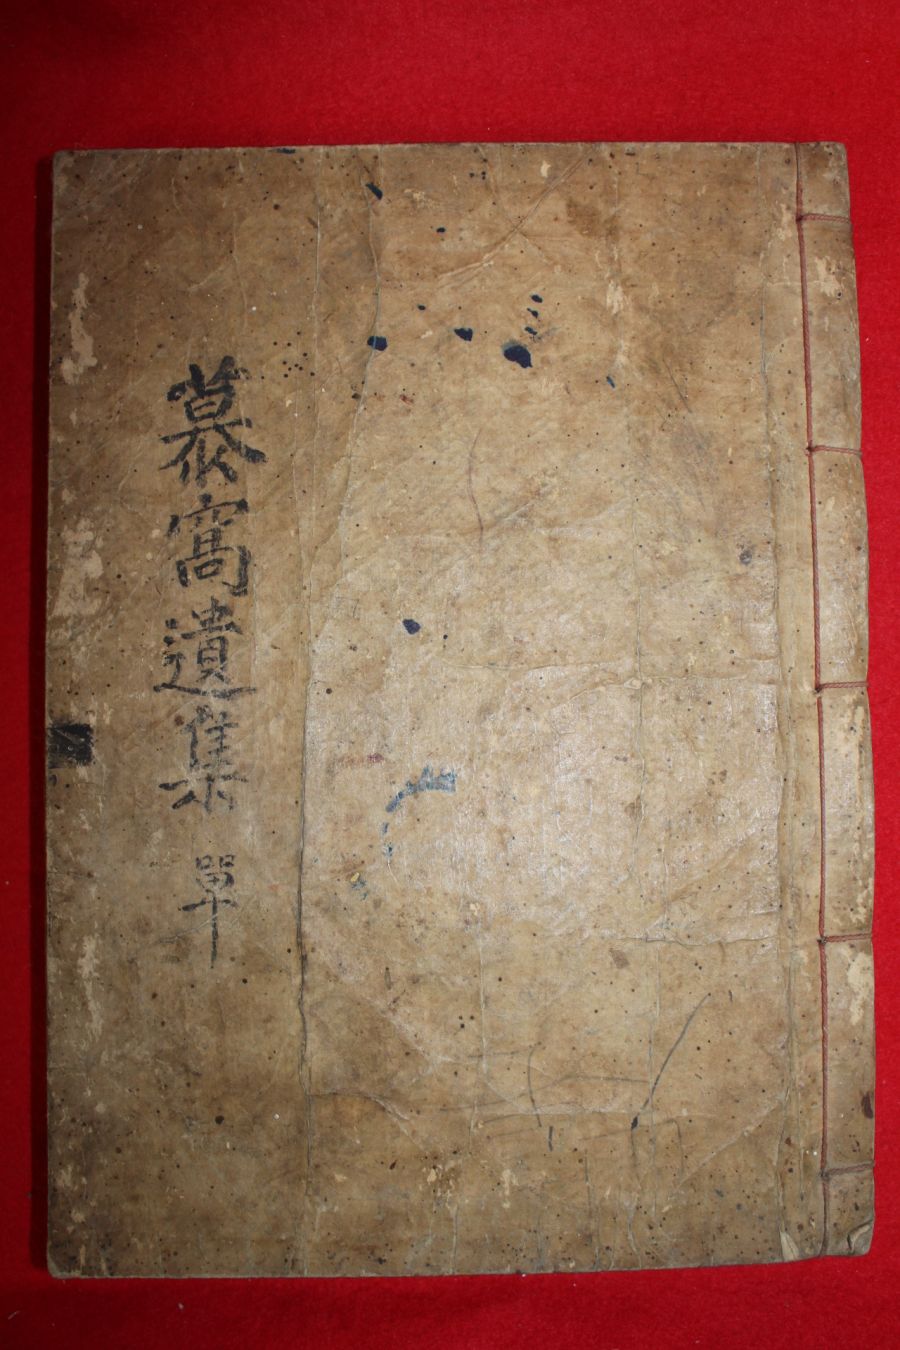 慕窩遺集 單